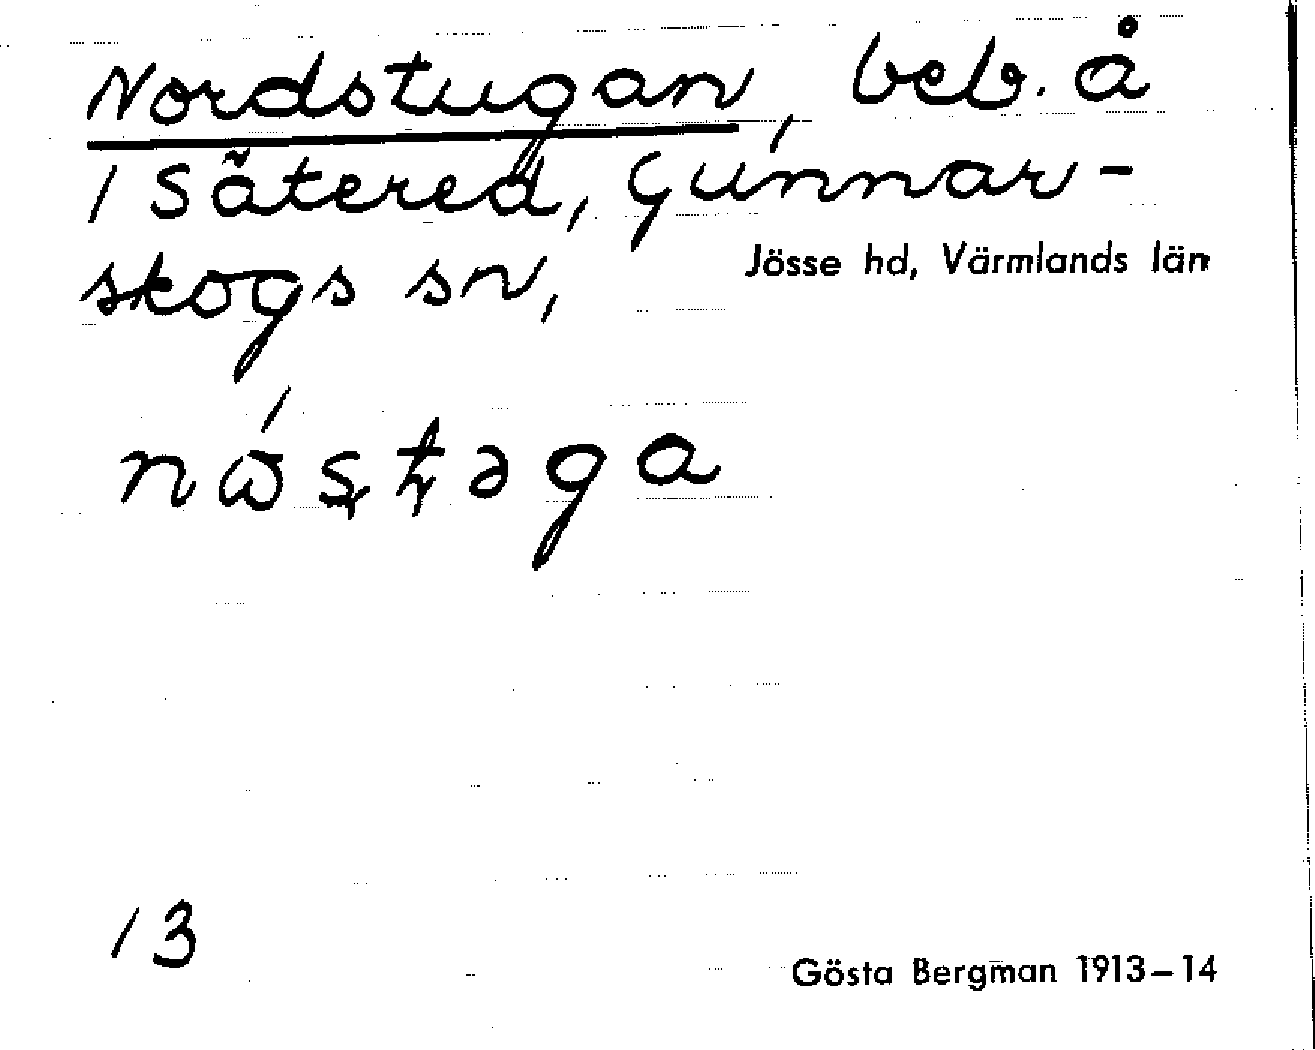 Nordstugan, beb. å
1 Sätered, Gunnar-
skogs sn,
Jösse hd, Värmlands län
13
Gösta Bergman 1913–14